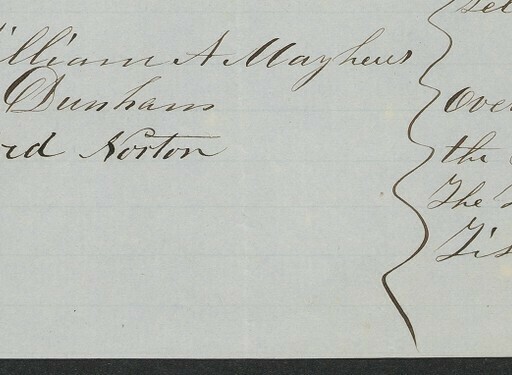 William A Mayhew
Dunham
rd Norton
Sel
Over
the
The
Tis